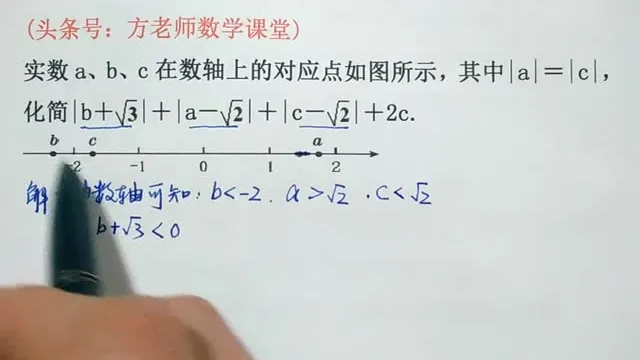 (头条号：方老师数学课堂)
实数a、b、c在数轴上的对应点如图所示，其中|a|=|c|，
化简|b+√3|+|a−√2|+|c−√2|+2c.
b c a
-2 -1 0 1 2
解 数轴可知：b<-2. a>√2 . c<√2
b+√3<0